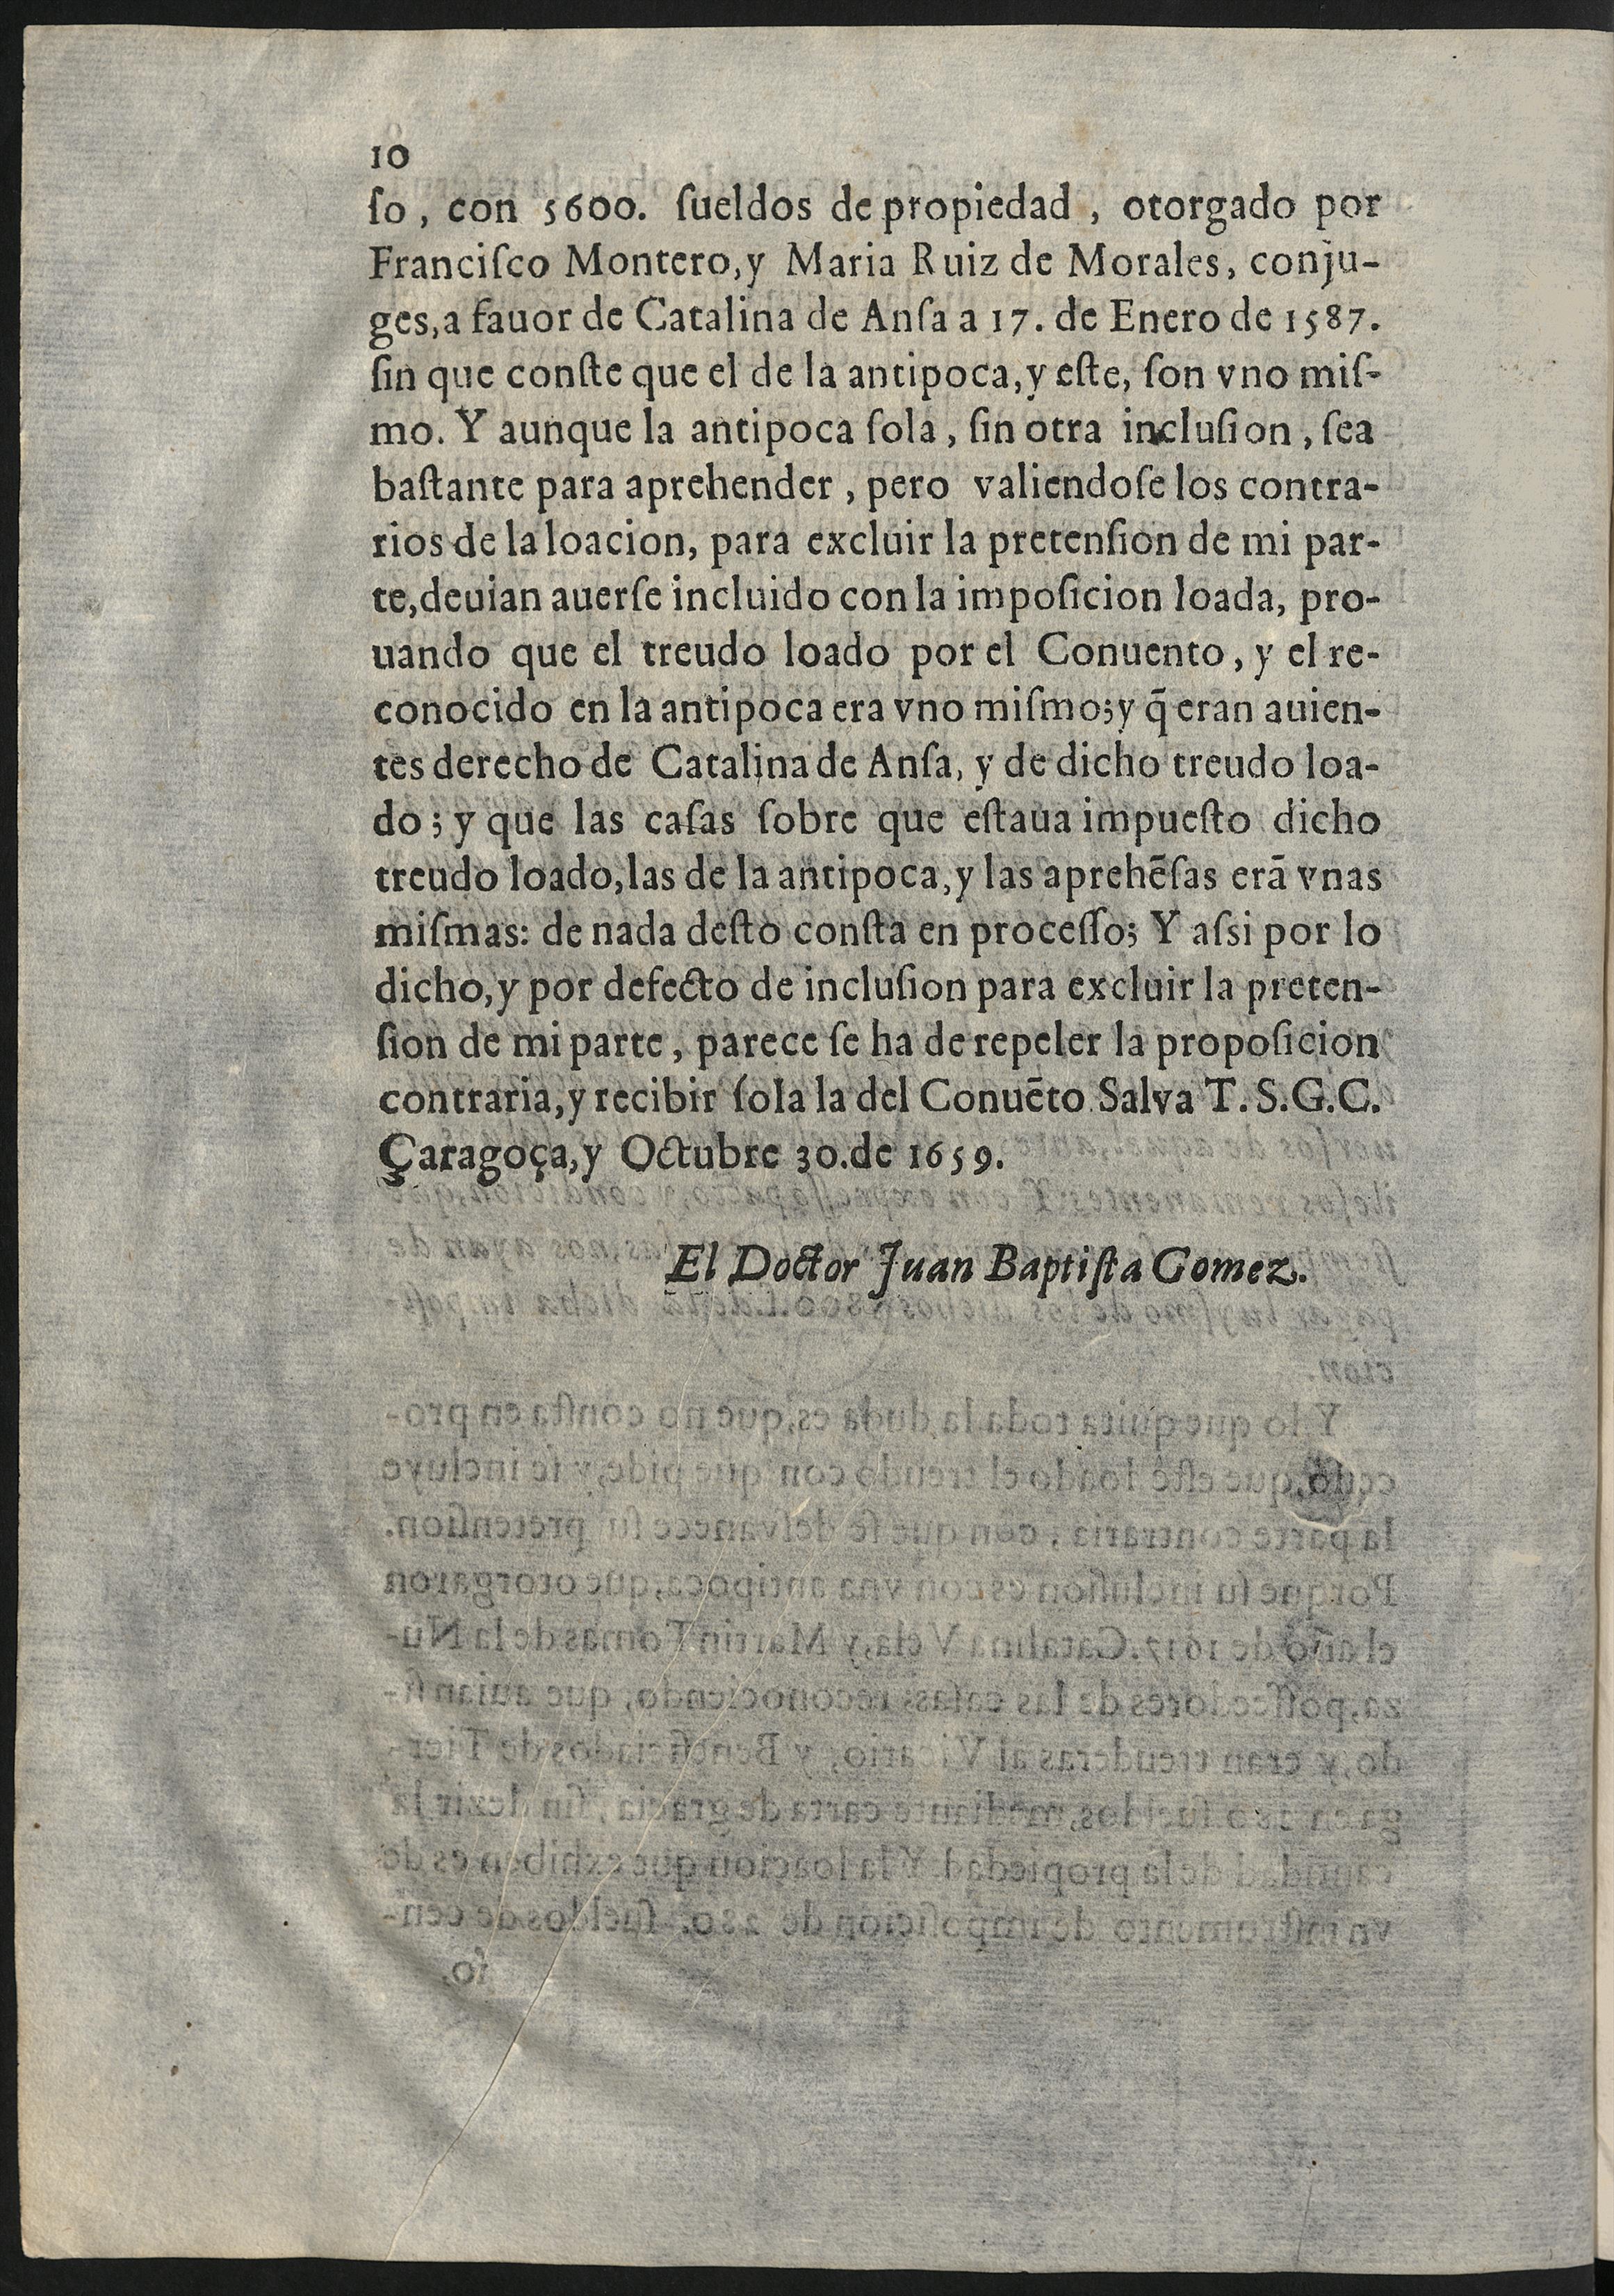 10
ſo, con 5600. ſueldos de propiedad, otorgado por
Franciſco Montero,y Maria Ruiz de Morales, conju-
ges,a fauor de Catalina de Anſa a 17. de Enero de 1587.
ſin que conſte que el de la antipoca,y eſte, ſon vno miſ-
mo. Y aunque la antipoca ſola, ſin otra incluſion, ſea
baſtante para aprehender, pero valiendoſe los contra-
rios de la loacion, para excluir la pretenſion de mi par-
te,deuian auerſe incluido con la impoſicion loada, pro-
uando que el treudo loado por el Conuento, y el re-
conocido en la antipoca era vno miſmo;y q̃ eran auien-
tes derecho de Catalina de Anſa, y de dicho treudo loa-
do; y que las caſas ſobre que eſtaua impueſto dicho
treudo loado,las de la antipoca,y las aprehẽſas erã vnas
miſmas: de nada deſto conſta en proceſſo; Y aſsi por lo
dicho,y por defecto de incluſion para excluir la preten-
ſion de mi parte, parece ſe ha de repeler la propoſicion
contraria,y recibir ſola la del Conuẽto Salva T. S. G. C.
Çaragoça,y Octubre 30.de 1659.
El Doctor Juan Baptiſta Gomez.